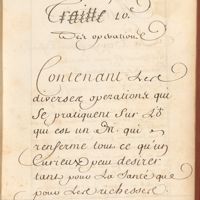 Traitté 10e
Des operations
Contenant Les
diverses operations qui
Se pratiquent Sur L'
qui est un qui
renferme tout ce qu'un
Curieux peu desirer
tant pour La Santé que
pour Les richesses